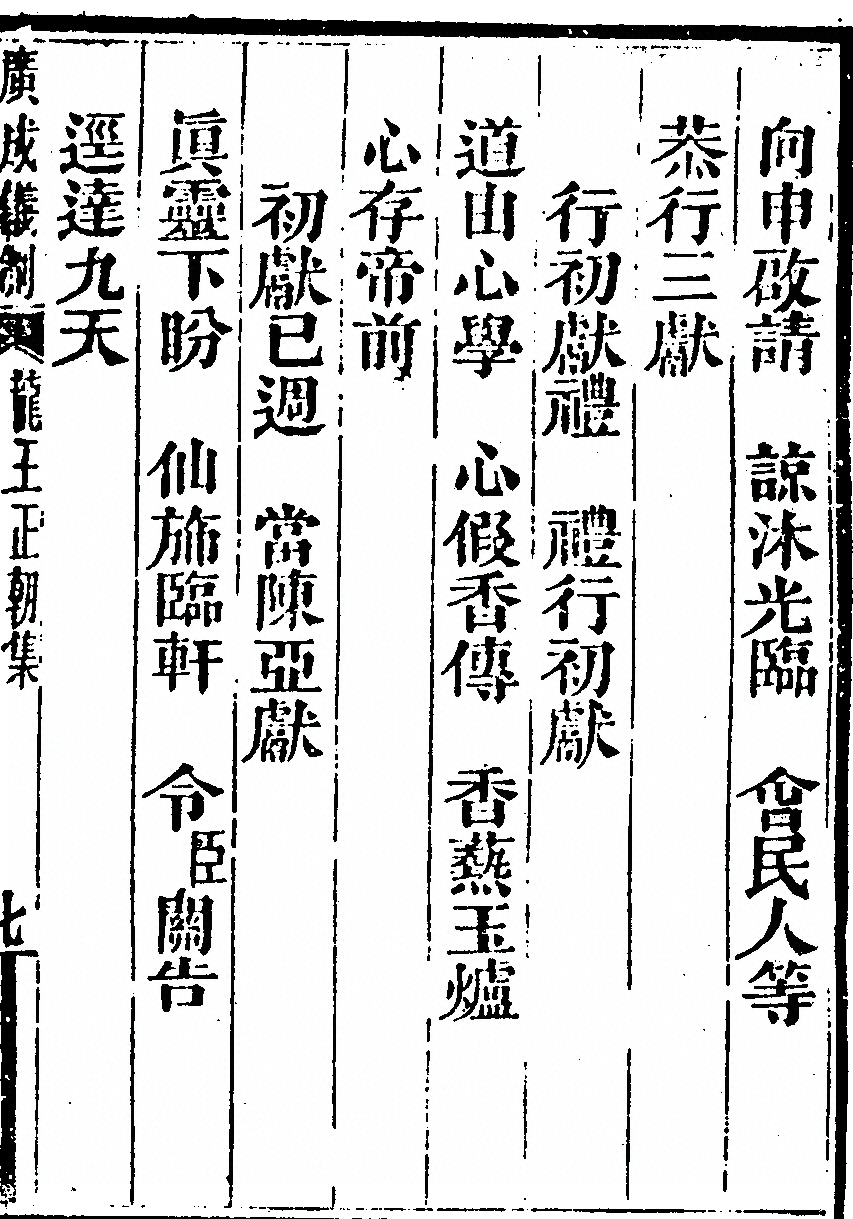 向申啟請　諒沐光臨　會民人等
恭行三獻
行初獻禮　禮行初獻
道由心學　心假香傳　香爇玉爐
心存帝前
初獻已週　當陳亞獻
眞靈下盼　仙旆臨軒　令臣關告
逕達九天
廣成儀制　龍王正朝集　七